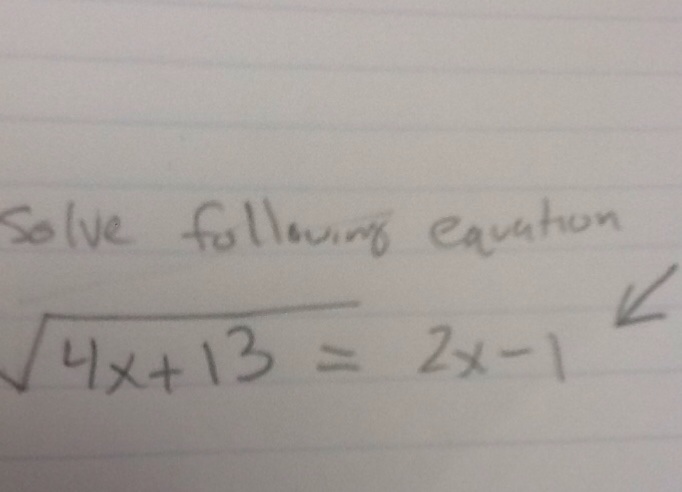 Solve following equation
√4x+13 = 2x-1